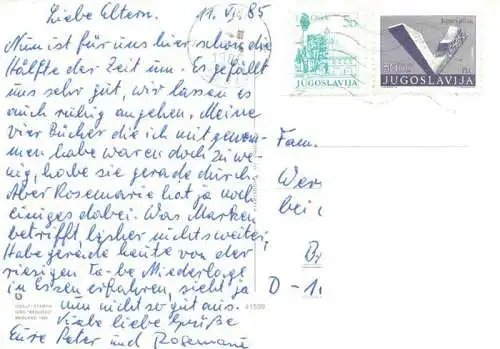 Liebe Eltern. 11. VI. 85
Nun ist für uns hier schon die
Hälfte der Zeit um. Es gefällt
uns sehr gut, wir lassen es
auch ruhig angehen. Meine
vier Bücher die ich mitgenom-
men habe waren doch zu we-
nig, habe sie gerade durch.
Aber Rosemarie hat ja noch
einiges dabei. Was Marken
betrifft, bisher nichts weiter,
Habe gerade heute von der
riesigen Niederlage
in Essen erfahren, sieht ja
nun nicht so gut aus.
Viele liebe Grüße
Eure Peter und Rosemarie
JUGOSLAVIJA
JUGOSLAVIJA
Fam.
bei
D - 1